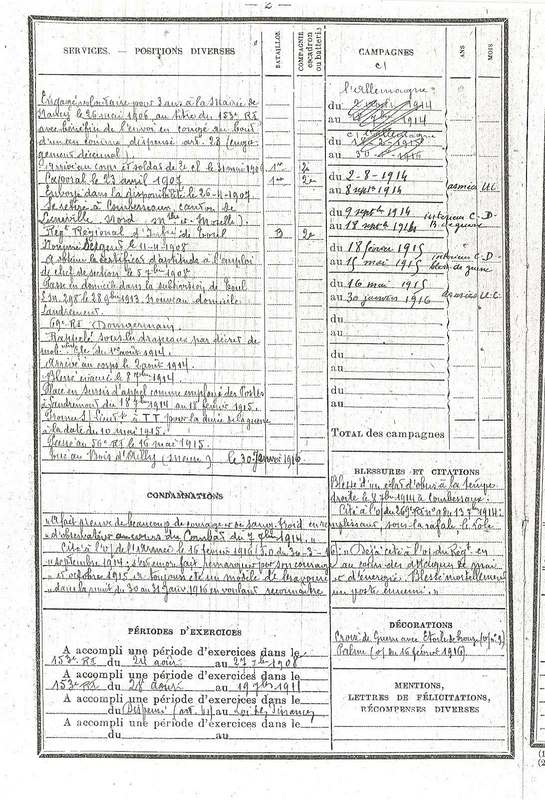 — 2 —
SERVICES. — POSITIONS DIVERSES
BATAILLON
COMPAGNIE
escadron
ou batterie
Engagé volontaire pour 3 ans à la Mairie de
Nancy le 26 mai 1906, au titre du 153e RI
avec bénéfice de l'envoi en congé au bout
d'un an comme dispensé art. 23 (engagement décennal).
Arrivé au corps et soldat de 2e cl le 31 mai 1906 1er 2e
Caporal le 23 avril 1907 1er 2e
Envoyé dans la disponibilité le 26-4-1907.
Se retire à Courbessaux, canton de
Lunéville Nord Mthe et Moselle).
Regt Régional d'Infrie de Toul 3 2e
Nommé Sergent le 11-4-1908
A obtenu le certificat d'aptitude à l'emploi
de chef de section le 5 7bre 1908
Passe en domicile dans la subdivision de Toul
Landremont.
69e RI (Domgermain)
Rappelé sous les drapeaux par décret de
mobon Gle du 1er août 1914.
Arrivé au corps le 2 août 1914.
Blessé évacué le 8 7bre 1914
Placé en sursis d'appel comme employé des Postes
à Landremont du 18 7bre 1914 au 18 février 1915.
Promu S/Lieutt à TT pour la durée de la guerre
à la date du 10 mai 1915.
Passé au 56e RI le 16 mai 1915.
Tué au Bois d'Ailly (Meuse) le 30 Janvier 1916
CAMPAGNES
ANS
MOIS
c/
l'Allemagne
du 2 août 1914
au
c/ l'Allemagne
du
au
du 2-8-1914
au 8 septre 1914 aux armées U.C.
du 9 septbre 1914
au 18 septbre 1914 intérieur C.D. B. de guerre
du 18 février 1915
au 15 mai 1915 intérieur C.D. bles. de guerre
du 16 mai 1915
au 30 janvier 1916 aux armées U.C.
du
au
du
au
du
au
TOTAL des campagnes
BLESSURES ET CITATIONS
Blessé d'un éclat d'obus à la tempe
droite le 8 7bre 1914 à Courbessaux.
Cité à l'O/ du 269e RI n° 98 du 13 7bre 1914:
CONDAMNATIONS
"A fait preuve de beaucoup de courage et de sang-froid en remplissant, sous la rafale, le rôle
"d'observateur au cours du Combat du 7 7bre 1914."
Cité à l'O/ de l'Armée le 16 février 1916 (J.O du 30-3-16): "Déjà cité à l'O/ du Régt en
"septembre 1914; s'est encore fait remarquer par son courage au cours des attaques de mai
"et octobre 1915, a toujours été un modèle de bravoure et d'énergie. Blessé mortellement
"dans la nuit du 30 au 31 janv. 1916 en voulant reconnaître un poste ennemi."
PÉRIODES D'EXERCICES
A accompli une période d'exercices dans le
153e RI du 24 août au 27 7bre 1908
A accompli une période d'exercices dans le
153e RI du 28 août au 19 7bre 1911
A accompli une période d'exercices dans le
du (Dispensé (art. 6) au Loi des Finances
A accompli une période d'exercices dans le
du au
DÉCORATIONS
Croix de Guerre avec Etoile de bronze (O/ n° 9)
Palme (O/ du 16 février 1916)
MENTIONS,
LETTRES DE FÉLICITATIONS,
RÉCOMPENSES DIVERSES
(1
(2